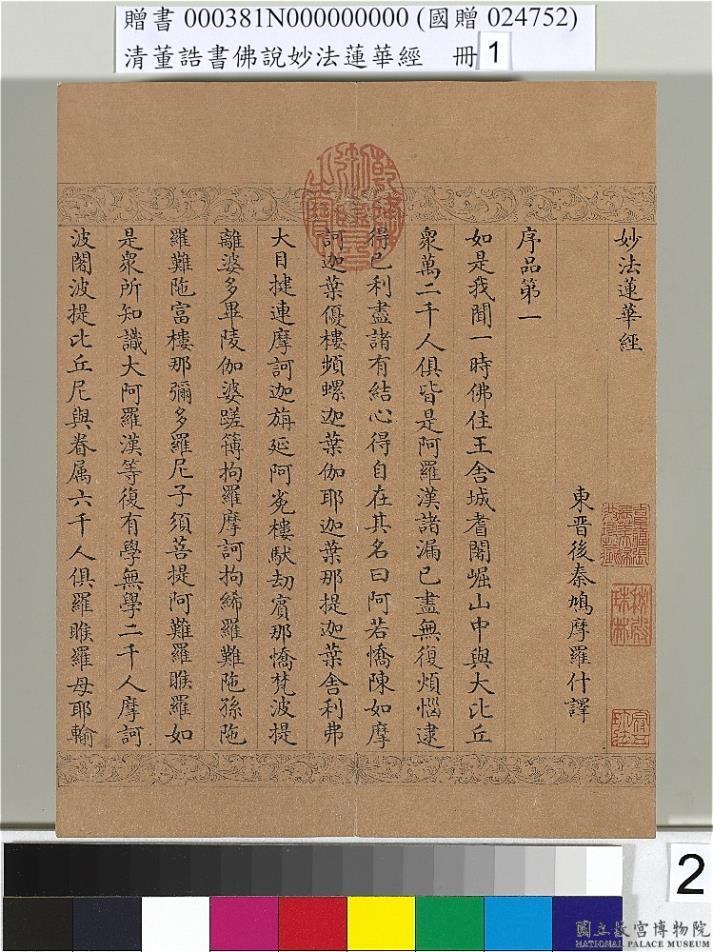 贈書 000381N000000000 (國贈 024752)
清董誥書佛說妙法蓮華經 冊 1
妙法蓮華經
東晉後秦鳩摩羅什譯
序品第一
如是我聞一時佛住王舍城耆闍崛山中與大比丘
衆萬二千人俱皆是阿羅漢諸漏已盡無復煩惱逮
得己利盡諸有結心得自在其名曰阿若憍陳如摩
訶迦葉優樓頻螺迦葉伽耶迦葉那提迦葉舍利弗
大目揵連摩訶迦旃延阿㝹樓馱劫賓那憍梵波提
離婆多畢陵伽婆蹉簿拘羅摩訶拘絺羅難陁孫陁
羅難陁富樓那彌多羅尼子須菩提阿難羅睺羅如
是衆所知識大阿羅漢等復有學無學二千人摩訶
波闍波提比丘尼與眷属六千人俱羅睺羅母耶輸
2
國立故宮博物院
NATIONAL PALACE MUSEUM